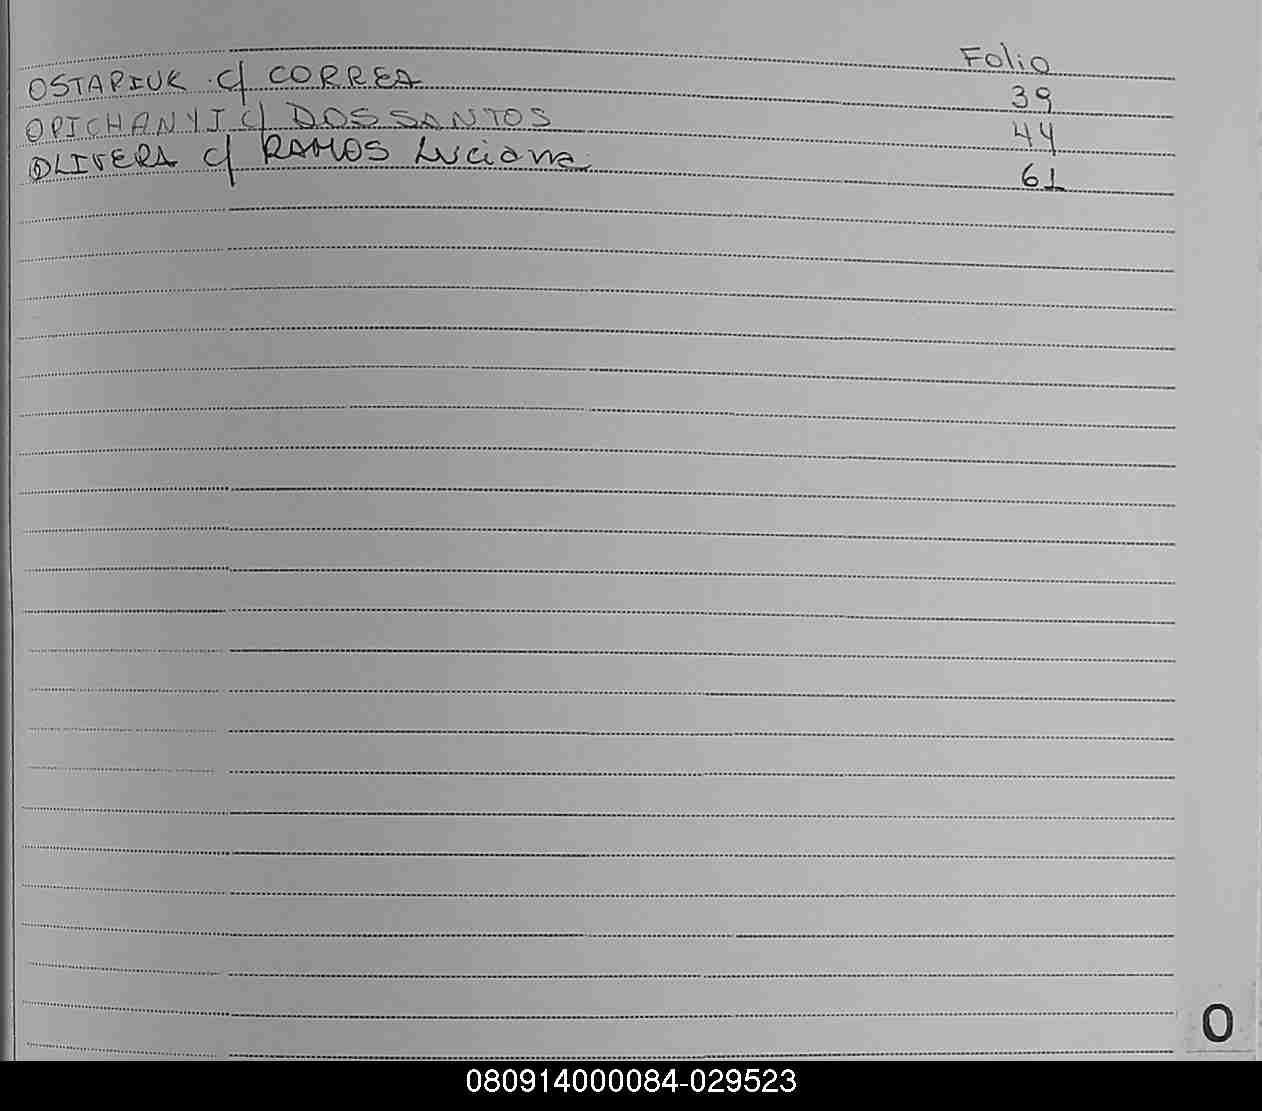 Folio
OSTAPIUK c/ CORREA 39
OPICHANYI c/ DOS SANTOS 44
OLIVERA c/ RAMOS Luciana 61
O
080914000084-029523